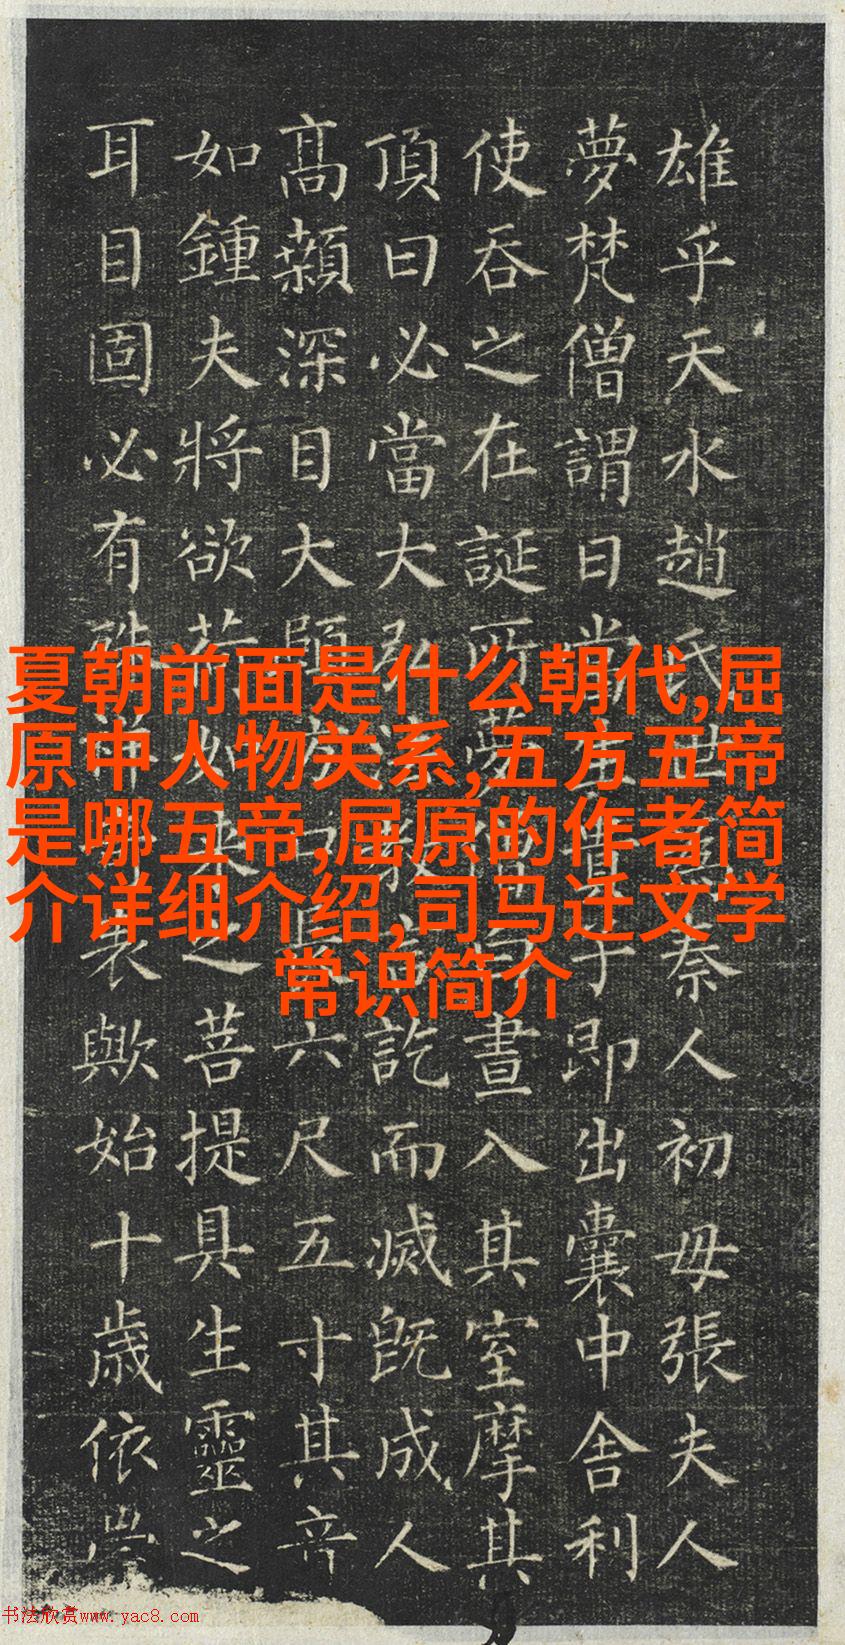 雄乎天水趙氏世為秦人初母張夫人
夢梵僧謂曰當生貴子即出囊中舍利
使吞之在誕所夢僧白晝入其室摩其
頂曰必當大弘法教言訖而滅既成人
高顙深目大頤方口長六尺五寸其音
如鍾夫將欲荷如來之菩提具生靈之
耳目固必有殊祥奇表歟始十歲依
夏朝前面是什么朝代,屈
原中人物关系,五方五帝
是哪五帝,屈原的作者简
介详细介绍,司马迁文学
常识简介
书法欣赏www.yac8.com